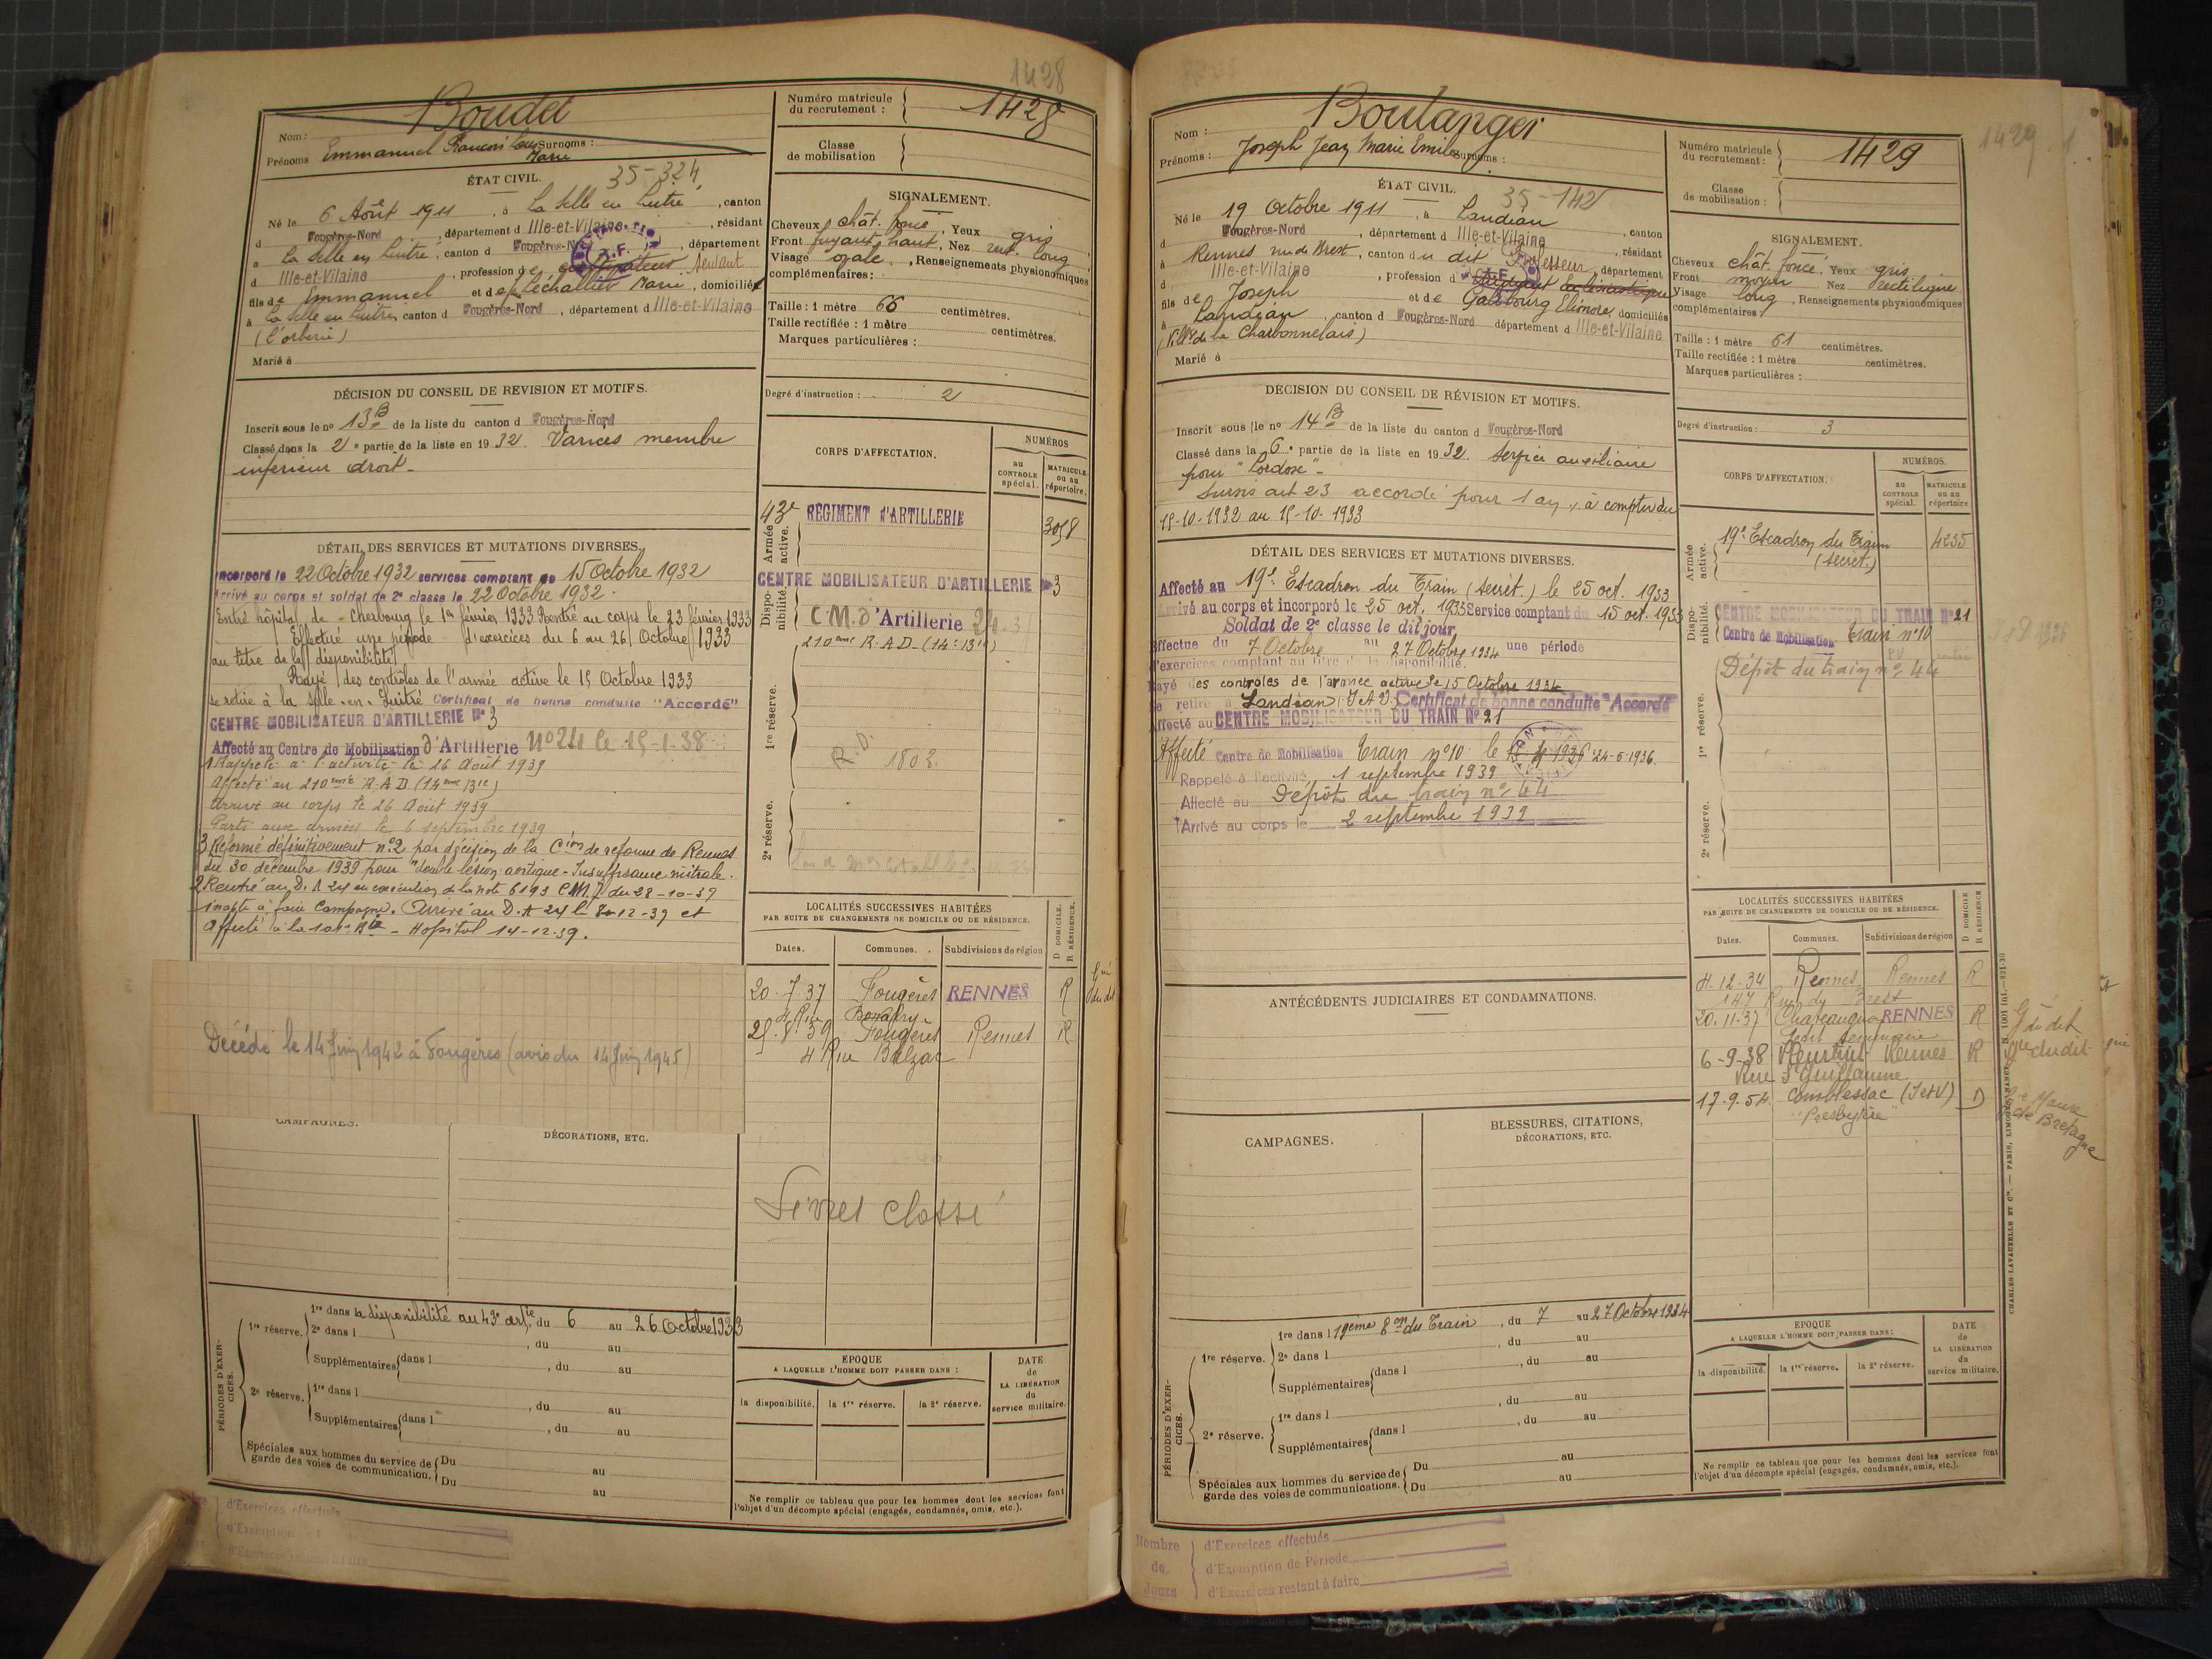 1428
Boudet
Nom :
Prénoms Emmanuel François Louis Surnoms :
Marie
Numéro matricule du recrutement : 1428
Classe de mobilisation
ÉTAT CIVIL. 35-324
Né le 6 Août 1911, à La Selle en Luitré, canton
d Fougères-Nord, département d Ille-et-Vilaine, résidant
à La Selle en Luitré, canton d Fougères-Nord, département
d Ille-et-Vilaine, profession de cultivateur
fils de Emmanuel et de Léchallier Marie, domiciliés
à La Selle en Luitré, canton d Fougères-Nord, département d Ille-et-Vilaine
(L'orberie)
Marié à
SIGNALEMENT.
Cheveux chât. foncé, Yeux gris
Front fuyant, haut, Nez rect. long
Visage ovale, Renseignements physionomiques
complémentaires :
Taille : 1 mètre 66 centimètres.
Taille rectifiée : 1 mètre centimètres.
Marques particulières :
Degré d'instruction : 2
DÉCISION DU CONSEIL DE REVISION ET MOTIFS.
Inscrit sous le n° 13 B de la liste du canton d Fougères-Nord
Classé dans la 2e partie de la liste en 1932. Varices membre
inférieur droit.
CORPS D'AFFECTATION.
NUMÉROS
au CONTROLE spécial.
MATRICULE ou au répertoire.
Armée active.
43e REGIMENT D'ARTILLERIE 3058
Disponibilité.
CENTRE MOBILISATEUR D'ARTILLERIE N° 3
C.M. d'Artillerie 24
210ème R.A.D. (14e Bie)
1re réserve.
R.D. 1802
2e réserve.
DÉTAIL DES SERVICES ET MUTATIONS DIVERSES.
Incorporé le 22 Octobre 1932 services comptant du 15 Octobre 1932
Arrivé au corps et soldat de 2e classe le 22 Octobre 1932.
Entré hôpital de Cherbourg le 1er février 1933. Rentré au corps le 23 février 1933
Effectué une période d'exercices du 6 au 26 Octobre 1933
au titre de la disponibilité
Rayé des contrôles de l'armée active le 15 Octobre 1933
se retire à la Selle-en-Luitré Certificat de bonne conduite "Accordé"
CENTRE MOBILISATEUR D'ARTILLERIE N° 3
Affecté au Centre de Mobilisation d'Artillerie N°24 le 15-1-38
1 Rappelé à l'activité le 26 Août 1939
Affecté au 210ème R.A.D (14ème Bie)
Arrivé au corps le 26 Août 1939
Parti aux armées le 6 septembre 1939
3 Réformé définitivement n°2 par décision de la Cion de réforme de Rennes
du 30 décembre 1939 pour "double lésion aortique - Insuffisance mitrale.
2 Rentré au D.A 24 en exécution de la note 6193 CM/7 du 28-10-39
inapte à faire Campagne. Arrivé au D.A 24 le 8-12-39 et
affecté à la 101e Bie - Hôpital 14-12-39.
Décédé le 14 Juin 1942 à Fougères (avis du 14 Juin 1945)
LOCALITÉS SUCCESSIVES HABITÉES
PAR SUITE DE CHANGEMENTS DE DOMICILE OU DE RÉSIDENCE.
D DOMICILE. R RÉSIDENCE.
Dates. Communes. Subdivisions de région
20-7-37 Fougères RENNES R
4 Rue Bonabry
25-8-39 Fougères Rennes R
4 Rue Balzac
CAMPAGNES.
DÉCORATIONS, ETC.
Livret classé
PÉRIODES D'EXERCICES.
1re réserve. 1re dans la disponibilité au 43e artie du 6 au 26 Octobre 1933
2e dans l , du au
Supplémentaires dans l , du au
2e réserve. 1re dans l , du au
Supplémentaires dans l , du au
Spéciales aux hommes du service de garde des voies de communication. Du au
Du au
EPOQUE
A LAQUELLE L'HOMME DOIT PASSER DANS :
la disponibilité. la 1re réserve. la 2e réserve.
DATE de LA LIBÉRATION du service militaire.
Ne remplir ce tableau que pour les hommes dont les services font
l'objet d'un décompte spécial (engagés, condamnés, omis, etc.).
d'Exercices effectués
d'Exemption
d'Exercices restant à faire
1429
Boulanger
Nom :
Prénoms : Joseph Jean Marie Emile Surnoms :
Numéro matricule du recrutement : 1429
Classe de mobilisation :
ÉTAT CIVIL. 35-142
Né le 19 Octobre 1911, à Landéan, canton
d Fougères-Nord, département d Ille-et-Vilaine, résidant
à Rennes rue de Brest, canton du dit, département
d Ille-et-Vilaine, profession d Professeur
Étudiant Ecclésiastique
fils de Joseph et de Galbourg Eléonore, domiciliés
à Landéan, canton d Fougères-Nord département d Ille-et-Vilaine
(Ville de la Charbonnelais)
Marié à
SIGNALEMENT.
Cheveux chât. foncé, Yeux gris
Front moyen Nez rectiligne
Visage long, Renseignements physionomiques
complémentaires :
Taille : 1 mètre 61 centimètres.
Taille rectifiée : 1 mètre centimètres.
Marques particulières :
Degré d'instruction : 3
DÉCISION DU CONSEIL DE RÉVISION ET MOTIFS.
Inscrit sous le n° 14 B de la liste du canton d Fougères-Nord
Classé dans la 6e partie de la liste en 1932. Service auxiliaire
pour "Lordose"
Sursis art 23 accordé pour 1 an, à compter du
15-10-1932 au 15-10-1933
CORPS D'AFFECTATION.
NUMÉROS.
au CONTROLE spécial.
MATRICULE ou au répertoire
Armée active.
19e Escadron du Train 4235
(Secrét.)
Disponibilité.
CENTRE MOBILISATEUR DU TRAIN N°21
Centre de Mobilisation Train n°10
Dépôt du train n° 44
1re réserve.
2e réserve.
DÉTAIL DES SERVICES ET MUTATIONS DIVERSES.
Affecté au 19e Escadron du Train (Secrét.) le 25 oct. 1933
Arrivé au corps et incorporé le 25 oct. 1933 Service comptant du 15 oct. 1933
Soldat de 2e classe le dit jour
Effectue du 7 Octobre au 27 Octobre 1934 une période
d'exercices comptant au titre de la disponibilité.
Rayé des contrôles de l'armée active le 15 Octobre 1934
Se retire à Landéan (I et V) Certificat de bonne conduite "Accordé"
Affecté au CENTRE MOBILISATEUR DU TRAIN N° 21
Affecté Centre de Mobilisation Train n°10 le 24-6-1936.
Rappelé à l'activité 1 septembre 1939
Affecté au Dépôt du train n° 44
Arrivé au corps le 2 septembre 1939
ANTÉCÉDENTS JUDICIAIRES ET CONDAMNATIONS.
LOCALITÉS SUCCESSIVES HABITÉES
PAR SUITE DE CHANGEMENTS DE DOMICILE OU DE RÉSIDENCE.
D DOMICILE R RÉSIDENCE
Dates. Communes. Subdivisions de région
4-12-34 Rennes Rennes R
147 Rue de Brest
20-11-37 Chateaugiron RENNES R
Petit Séminaire
6-9-38 Rennes R
Rue St Guillaume
17-9-54 Comblessac (I et V) D
"Presbytère"
Gie du dit
Gie du dit
Gie Maure de Bretagne
CAMPAGNES.
BLESSURES, CITATIONS,
DÉCORATIONS, ETC.
PÉRIODES D'EXERCICES.
1re réserve. 1re dans l 19ème Eon du Train, du 7 au 27 Octobre 1934
2e dans l , du au
Supplémentaires dans l , du au
2e réserve. 1re dans l , du au
Supplémentaires dans l , du au
Spéciales aux hommes du service de garde des voies de communications. Du au
Du au
EPOQUE
A LAQUELLE L'HOMME DOIT PASSER DANS :
la disponibilité. la 1re réserve. la 2e réserve.
DATE de LA LIBÉRATION du service militaire.
Ne remplir ce tableau que pour les hommes dont les services font
l'objet d'un décompte spécial (engagés, condamnés, omis, etc.).
CHARLES-LAVAUZELLE ET Cie. — PARIS, LIMOGES, NANCY
Nombre de Jours
d'Exercices effectués
d'Exemption de Période
d'Exercices restant à faire